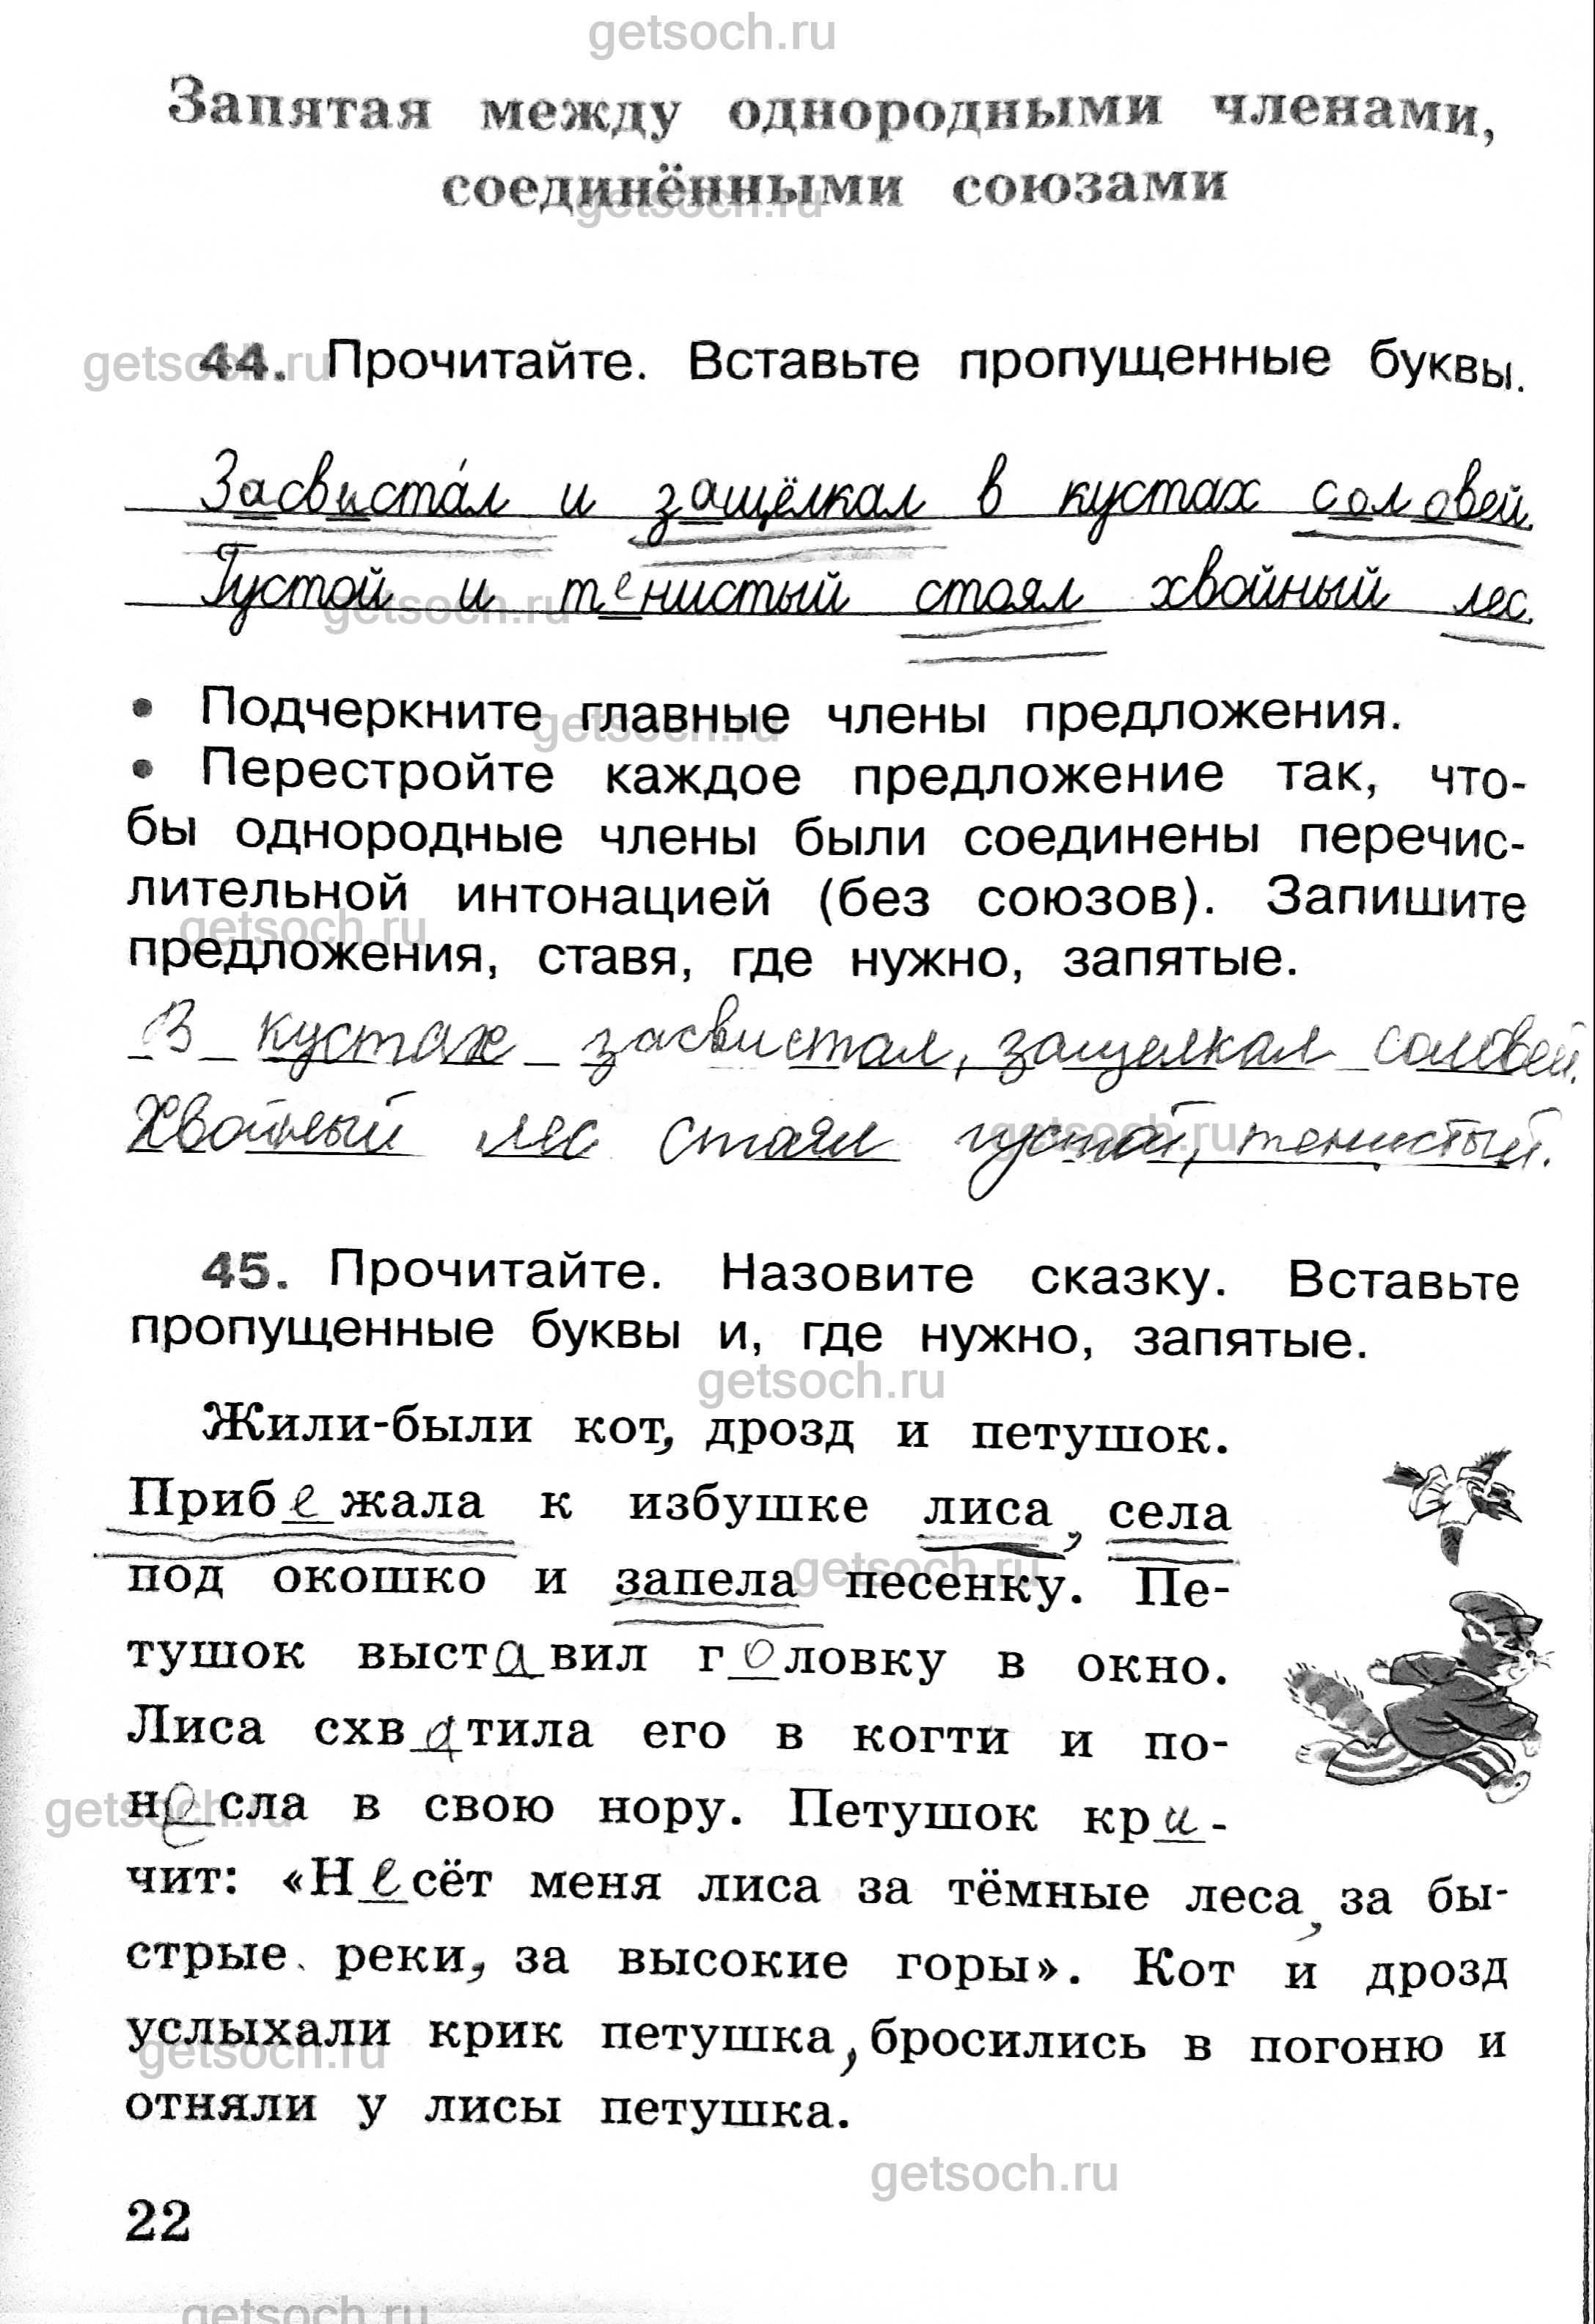 getsoch.ru
Запятая между однородными членами,
соединёнными союзами
getsoch.ru
44. Прочитайте. Вставьте пропущенные буквы.
getsoch.ru
Засвиста́л и защёлкал в кустах соловей.
Густой и тенистый стоял хвойный лес.
getsoch.ru
• Подчеркните главные члены предложения.
getsoch.ru
• Перестройте каждое предложение так, что-
бы однородные члены были соединены перечис-
лительной интонацией (без союзов). Запишите
getsoch.ru
предложения, ставя, где нужно, запятые.
В кустах засвистал, защелкал соловей.
Хвойный лес стоял густой, тенистый.
getsoch.ru
45. Прочитайте. Назовите сказку. Вставьте
пропущенные буквы и, где нужно, запятые.
getsoch.ru
Жили-были кот, дрозд и петушок.
Прибежала к избушке лиса, села
под окошко и запела песенку. Пе-
getsoch.ru
тушок выставил головку в окно.
Лиса схватила его в когти и по-
несла в свою нору. Петушок кри-
getsoch.ru
чит: «Несёт меня лиса за тёмные леса, за бы-
стрые реки, за высокие горы». Кот и дрозд
услыхали крик петушка, бросились в погоню и
getsoch.ru
отняли у лисы петушка.
getsoch.ru
22
getsoch.ru